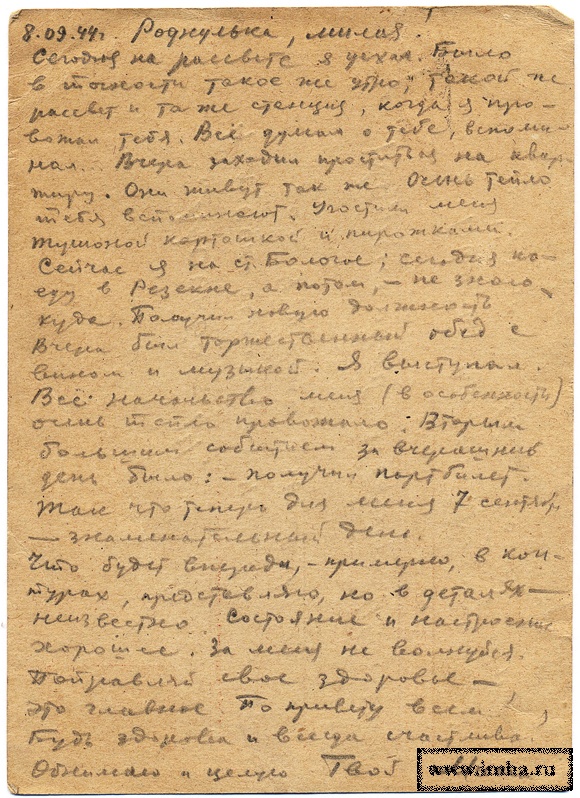 8.09.44г. Роднулька, милая!
Сегодня на рассвете я уехал. Было
в точности такое же утро, такой же
рассвет и та же станция, когда я про-
вожал тебя. Всё думал о тебе, вспоми-
нал. Вчера заходил проститься на квар-
тиру. Они живут так же. Очень тепло
тебя вспоминают. Угостили меня
тушоной картошкой и пирожками.
Сейчас я на ст. Бологое; сегодня по-
еду в Резекне, а потом, – не знаю
куда. Получил новую должность
Вчера был торжественный обед с
вином и музыкой. Я выступал.
Всё начальство меня (в особенности)
очень тепло провожало. Вторым
большим событием за вчерашний
день было: – получил партбилет.
Так что теперь для меня 7 сентябр
— знаменательный день.
Что будет впереди, – примерно, в кон-
турах, представляю, но в деталях —
неизвестно Состояние и настроение
хорошее. За меня не волнуйся.
Поправляй свое здоровье —
это главное По привету всем!
Будь здорова и всегда счастлива.
Обнимаю и целую Твой
www.imha.ru